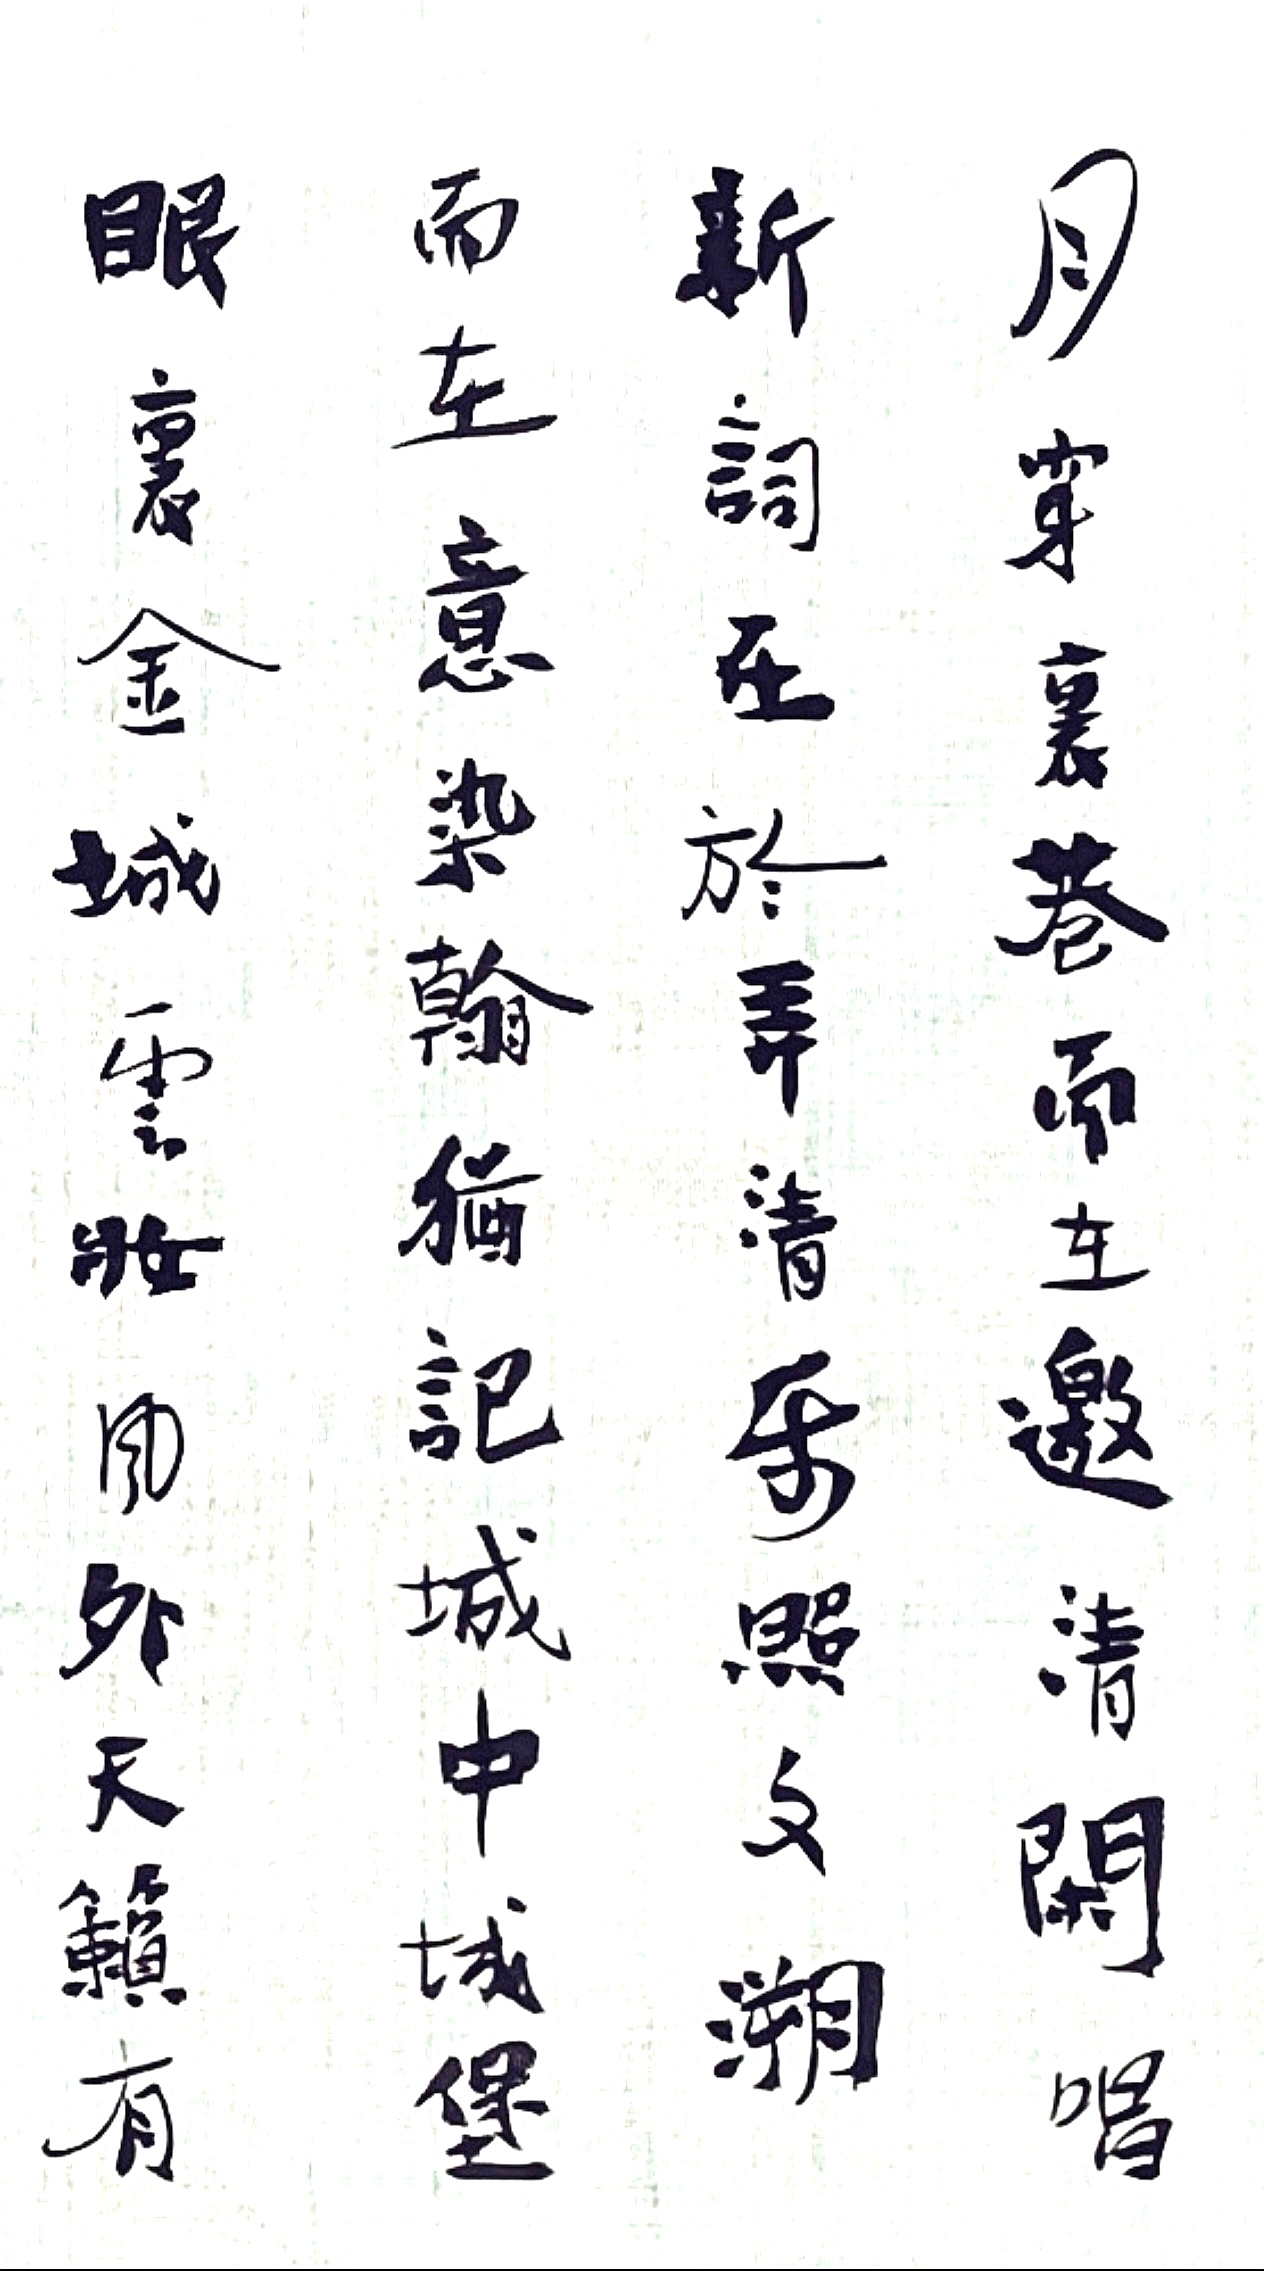 月穿裏巷而在邀清閑唱
新詞在於弄清影照文溯
而在意染翰猶記城中城堡
眼裏金城雲妝風外天籟有